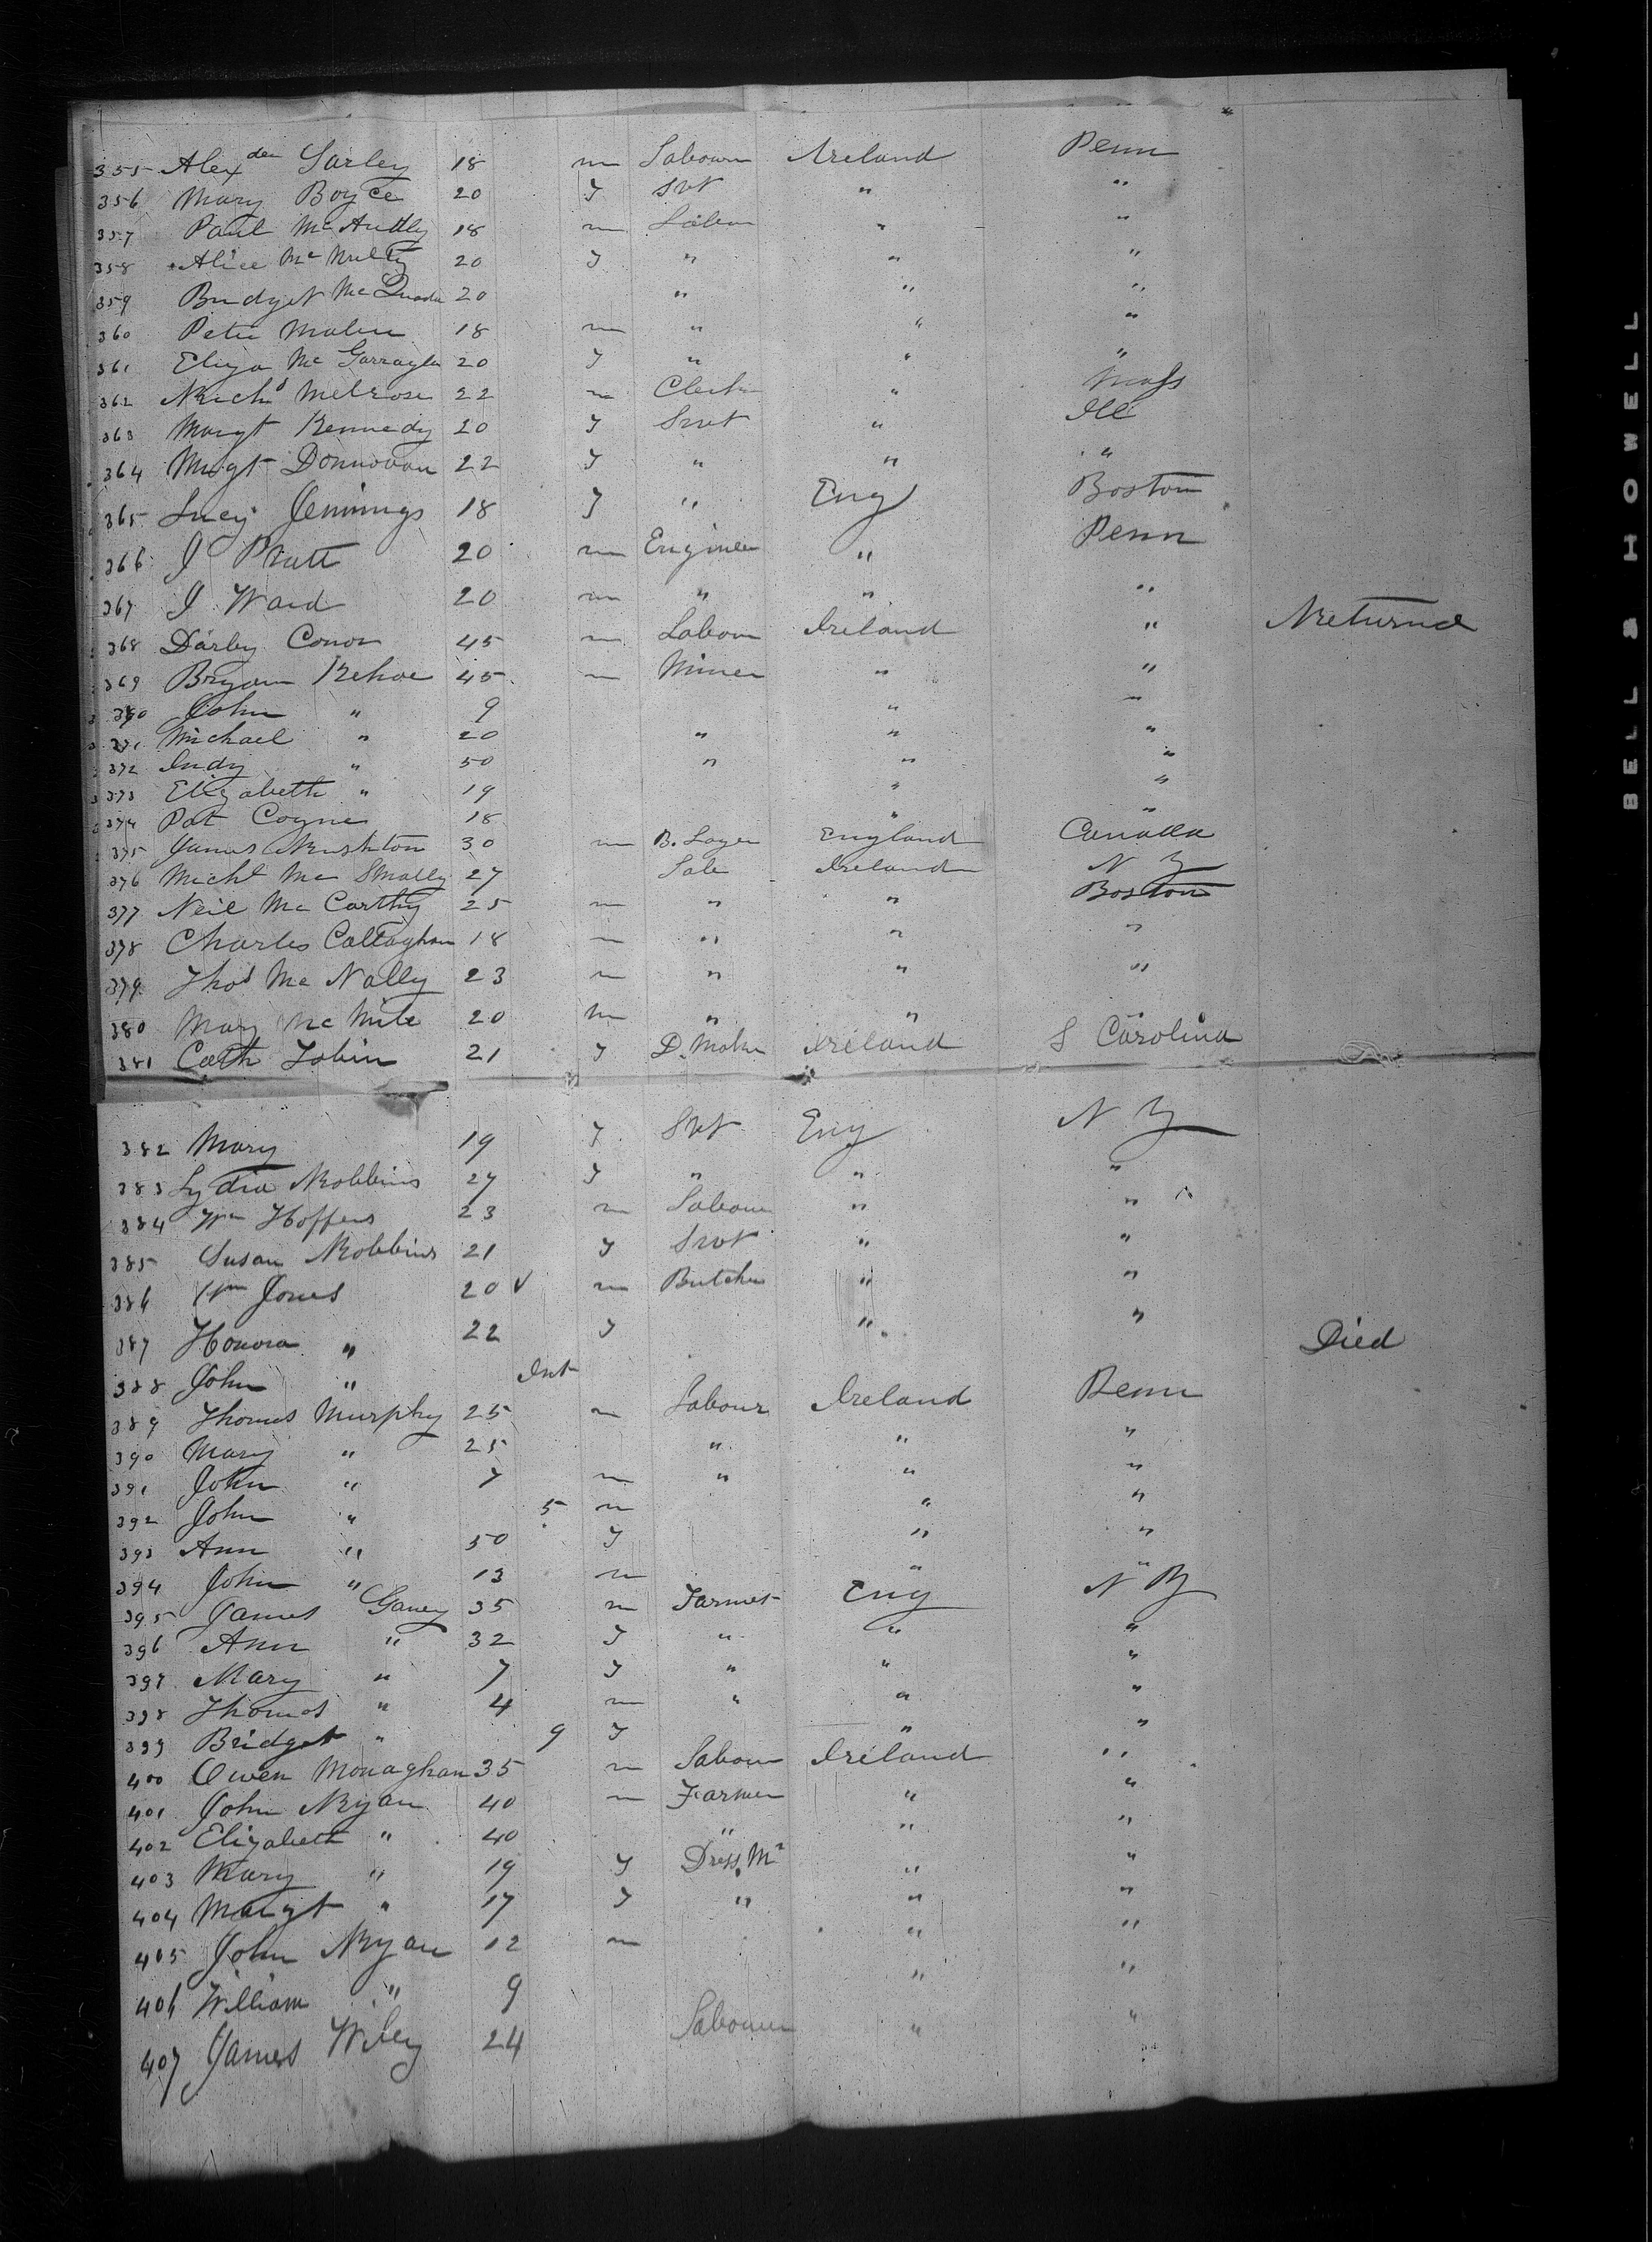 355 Alexder Sarley 18 m Labourer Ireland Penn
356 Mary Boyce 20 f Svt " "
357 Paul McAndley 18 m Labour " "
358 Alice McNulty 20 f " " "
359 Bridget McQuade 20 " " "
360 Peter Malin 18 m " " "
361 Eliza McGarraghy 20 f " " "
362 Richd Melrose 22 m Clerk " Mass
363 Margt Kennedy 20 f Srvt " Ill
364 Mrgt Donnovan 22 f " " "
365 Lucy Jennings 18 f " Eng Boston
366 J Pratt 20 m Engineer " Penn
367 J Ward 20 m " " "
368 Darby Conor 45 m Labour Ireland " Returned
369 Bryan Kehoe 45 m Miner " "
370 John " 9 " "
371 Michael " 20 " " "
372 Judy " 50 " " "
373 Elizabeth " 19 " "
374 Pat Coyne 18 " "
375 James Rushton 30 m B. Layer England Canada
376 Michl Mc Smally 27 Labr Ireland N Y
377 Neil McCarthy 25 m " " Boston
378 Charles Callaghan 18 m " " "
379 Thos McNally 23 m " " "
380 Mary Mc 20 m " " "
381 Cath Tobin 21 f D. Maker Ireland S Carolina
382 Mary 19 f Svt Eng N Y
383 Lydia Robbins 27 f " " "
384 Wm Hoffers 23 m Labour " "
385 Susan Robbins 21 f Srvt " "
386 Wm Jones 20 m Butcher " "
387 Honora " 22 f " "
388 John " Inft Died
389 Thomas Murphy 25 m Labour Ireland Penn
390 Mary " 25 " " "
391 John " 7 m " " "
392 John " 5 m " "
393 Ann " 50 f " "
394 John " 13 m " "
395 James Ganey 35 m Farmer Eng N Y
396 Ann " 32 f " " "
397 Mary " 7 f " " "
398 Thomas " 4 m " " "
399 Bridget " 9 f " "
400 Owen Monaghan 35 m Labour Ireland "
401 John Ryan 40 m Farmer " "
402 Elizabeth " 40 " " "
403 Mary " 19 f Dress Mr " "
404 Margt " 17 f " " "
405 John Ryan 12 m " "
406 William " 9 " "
407 James Wiley 24 Labourer " "
BELL & HOWELL